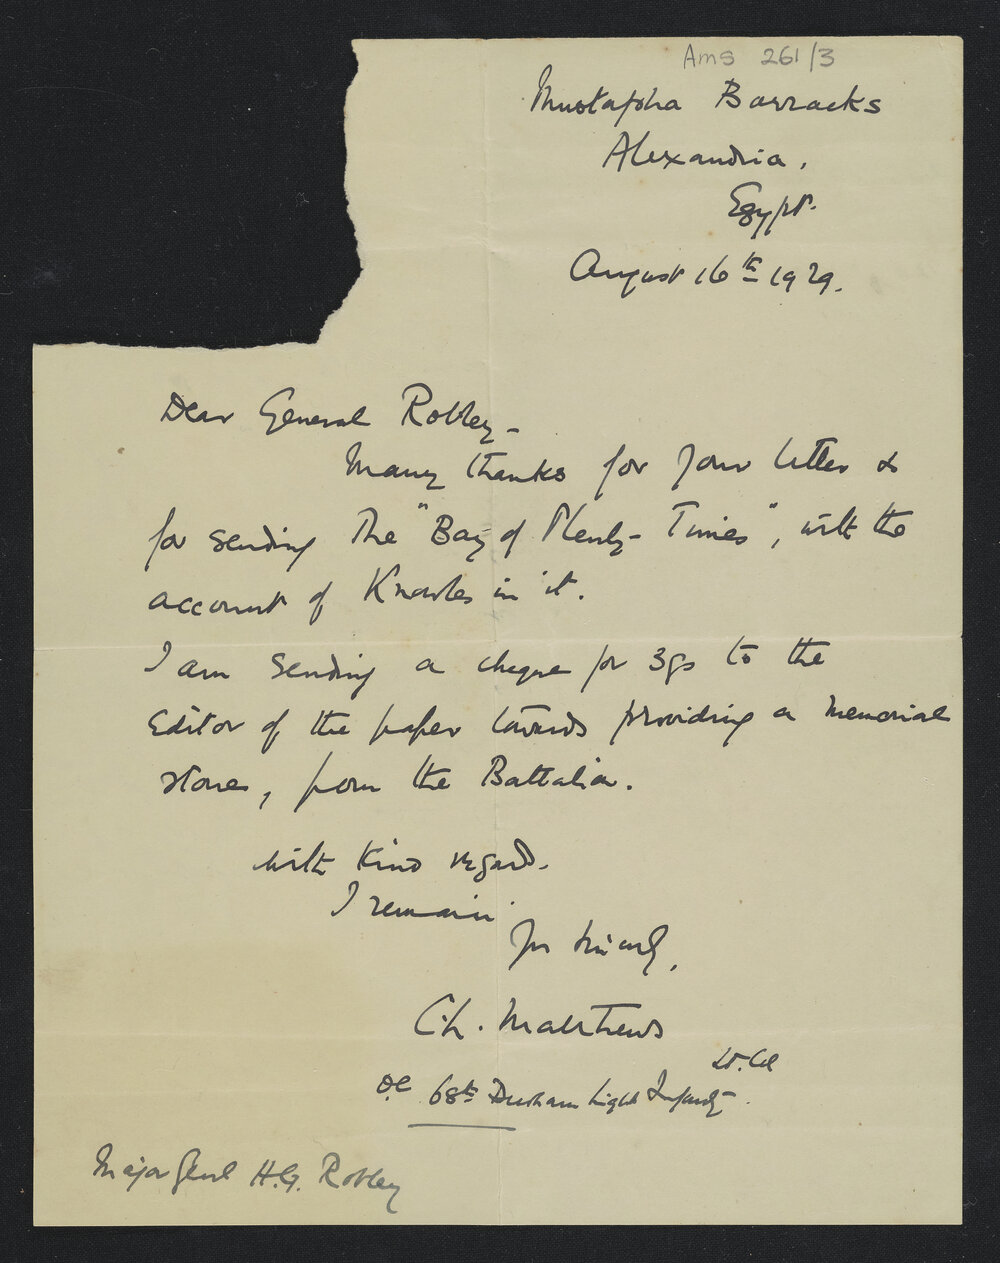 Ams 261/3
Mustapha Barracks
Alexandria.
Egypt.
August 16th 1929.
Dear General Robley -
Many thanks for your letter &
for sending the "Bay of Plenty - Times", with the
account of Knowles in it.
I am sending a cheque for 3gs to the
Editor of the paper towards providing a memorial
stone, from the Battalion.
With kind regards.
I remain
Yrs sincerely,
C.L. Matthews
Lt. Col
O.C 68th Durham Light Infantry.
Major Genl H.G. Robley